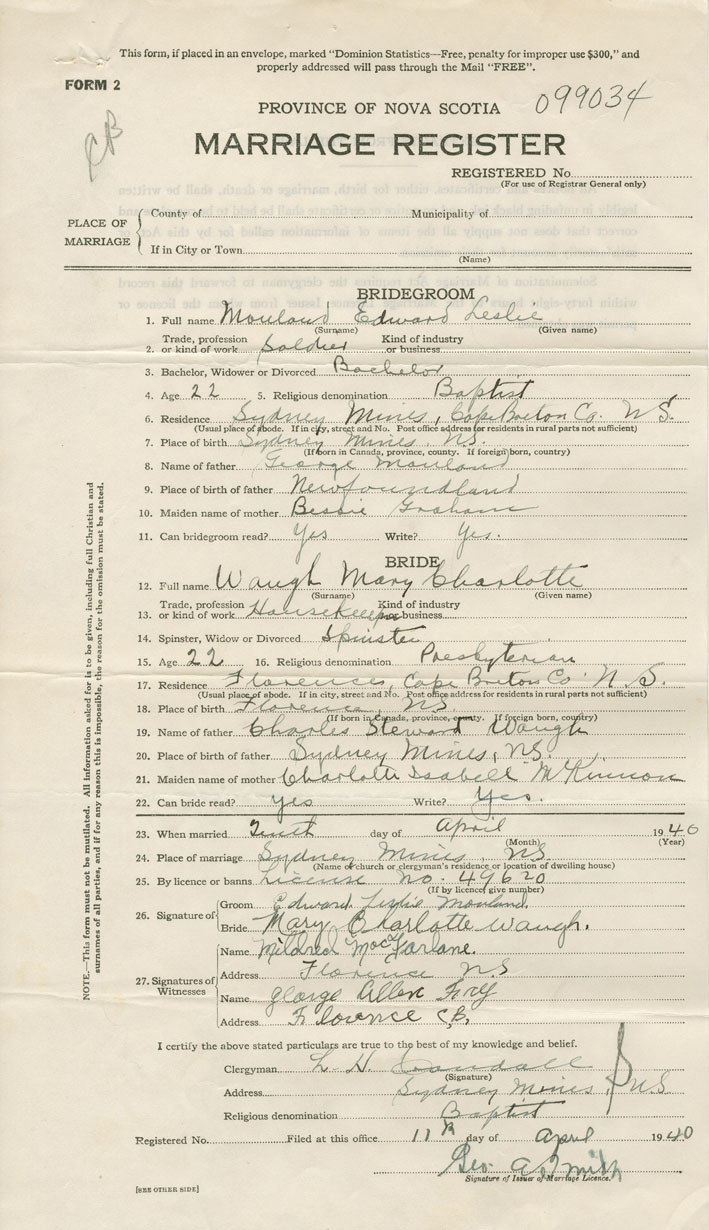 This form, if placed in an envelope, marked "Dominion Statistics—Free, penalty for improper use $300," and
properly addressed will pass through the Mail "FREE".
FORM 2
CB
PROVINCE OF NOVA SCOTIA 099034
MARRIAGE REGISTER
REGISTERED No.
(For use of Registrar General only)
PLACE OF MARRIAGE
County of Municipality of
If in City or Town
(Name)
BRIDEGROOM
1. Full name Mouland Edward Leslie
(Surname) (Given name)
Trade, profession Kind of industry
2. or kind of work Soldier or business
3. Bachelor, Widower or Divorced Bachelor
4. Age 22 5. Religious denomination Baptist
6. Residence Sydney Mines, Cape Breton Co. N.S.
(Usual place of abode. If in city, street and No. Post office address for residents in rural parts not sufficient)
7. Place of birth Sydney Mines, N.S.
(If born in Canada, province, county. If foreign born, country)
8. Name of father George Mouland
9. Place of birth of father Newfoundland
10. Maiden name of mother Bessie Graham
11. Can bridegroom read? Yes Write? Yes.
BRIDE
12. Full name Waugh Mary Charlotte
(Surname) (Given name)
Trade, profession Kind of industry
13. or kind of work Housekeeper or business
14. Spinster, Widow or Divorced Spinster
15. Age 22 16. Religious denomination Presbyterian
17. Residence Florence, Cape Breton Co N.S.
(Usual place of abode. If in city, street and No. Post office address for residents in rural parts not sufficient)
18. Place of birth Florence, NS
(If born in Canada, province, county. If foreign born, country)
19. Name of father Charles Steward Waugh
20. Place of birth of father Sydney Mines, N.S.
21. Maiden name of mother Charlotte Isabell McKinnon
22. Can bride read? yes Write? Yes.
23. When married Tenth day of April 1940
(Month) (Year)
24. Place of marriage Sydney Mines, NS
(Name of church or clergyman's residence or location of dwelling house)
25. By licence or banns License no. 49620
(If by licence give number)
26. Signature of
Groom Edward Leslie Mouland.
Bride Mary Charlotte Waugh.
27. Signatures of Witnesses
Name Mildred MacFarlane.
Address Florence NS
Name George Allen
Address Florence C.B.
I certify the above stated particulars are true to the best of my knowledge and belief.
Clergyman L. H.
(Signature)
Address Sydney Mines, N.S
Religious denomination Baptist
Registered No. Filed at this office 11th day of April 1940
Geo. A. Smith
Signature of Issuer of Marriage Licence.
[SEE OTHER SIDE]
NOTE.—This form must not be mutilated. All information asked for is to be given, including full Christian and
surnames of all parties, and if for any reason this is impossible, the reason for the omission must be stated.